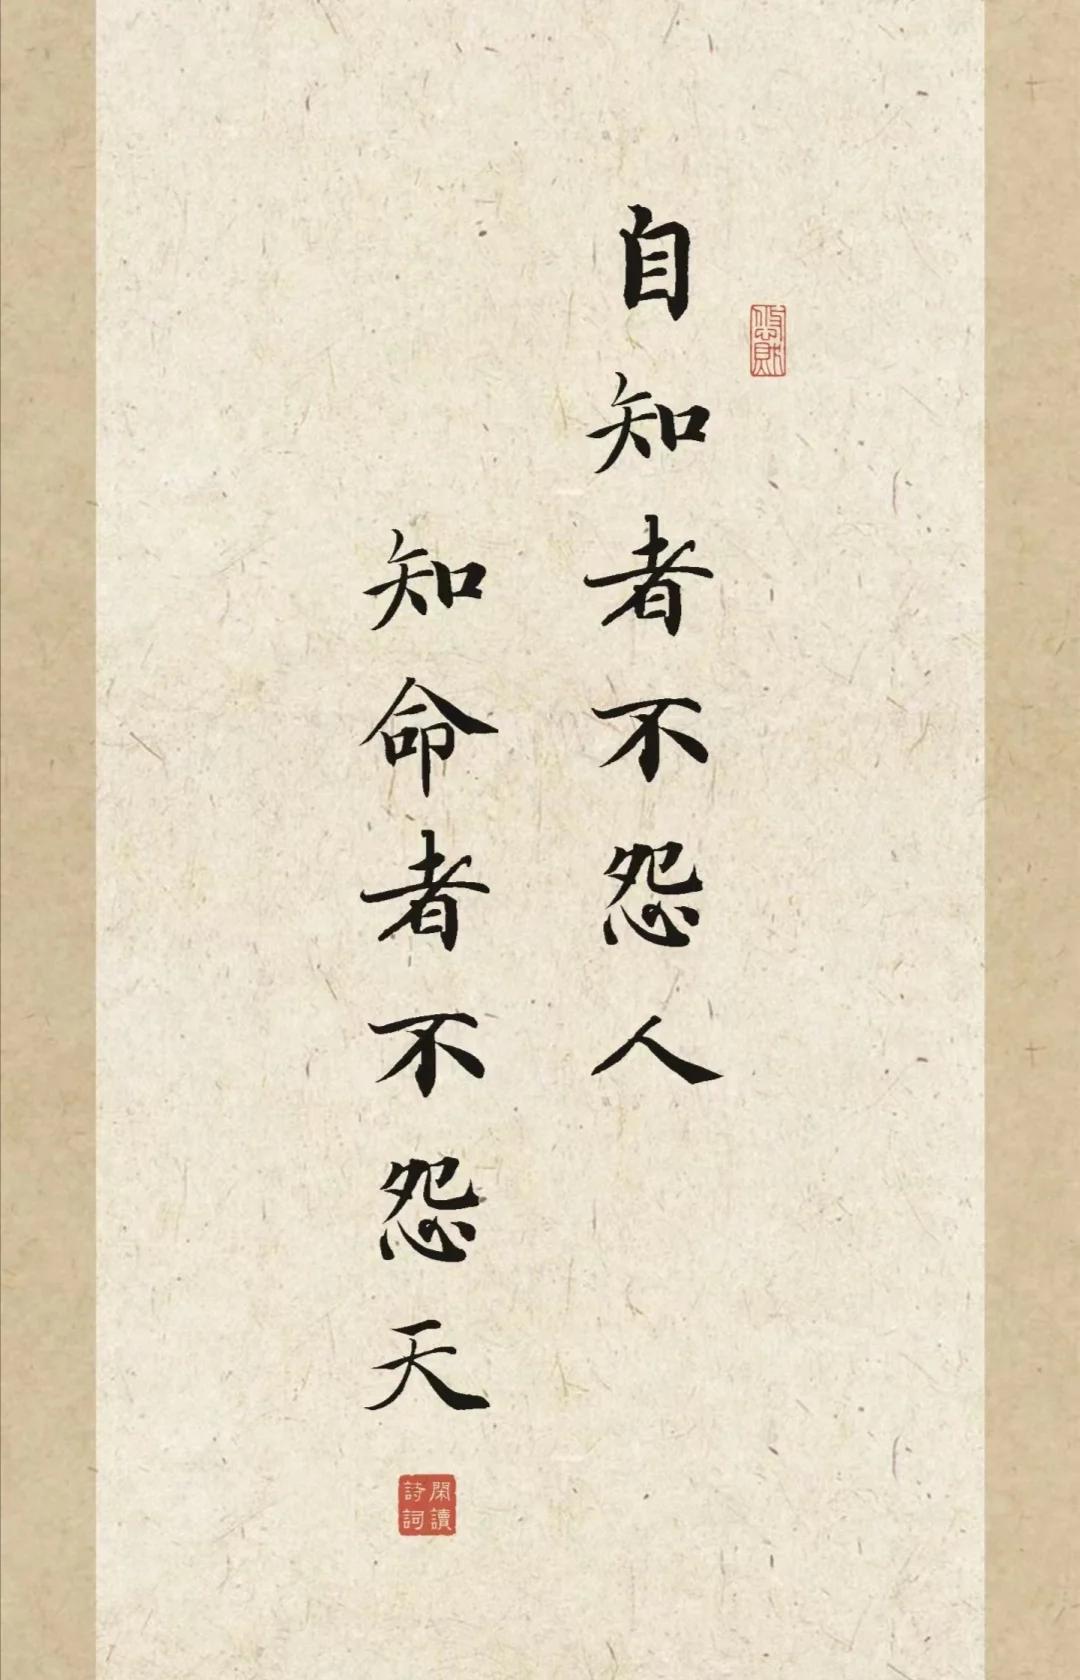 自知者不怨人
知命者不怨天
閑讀
詩詞